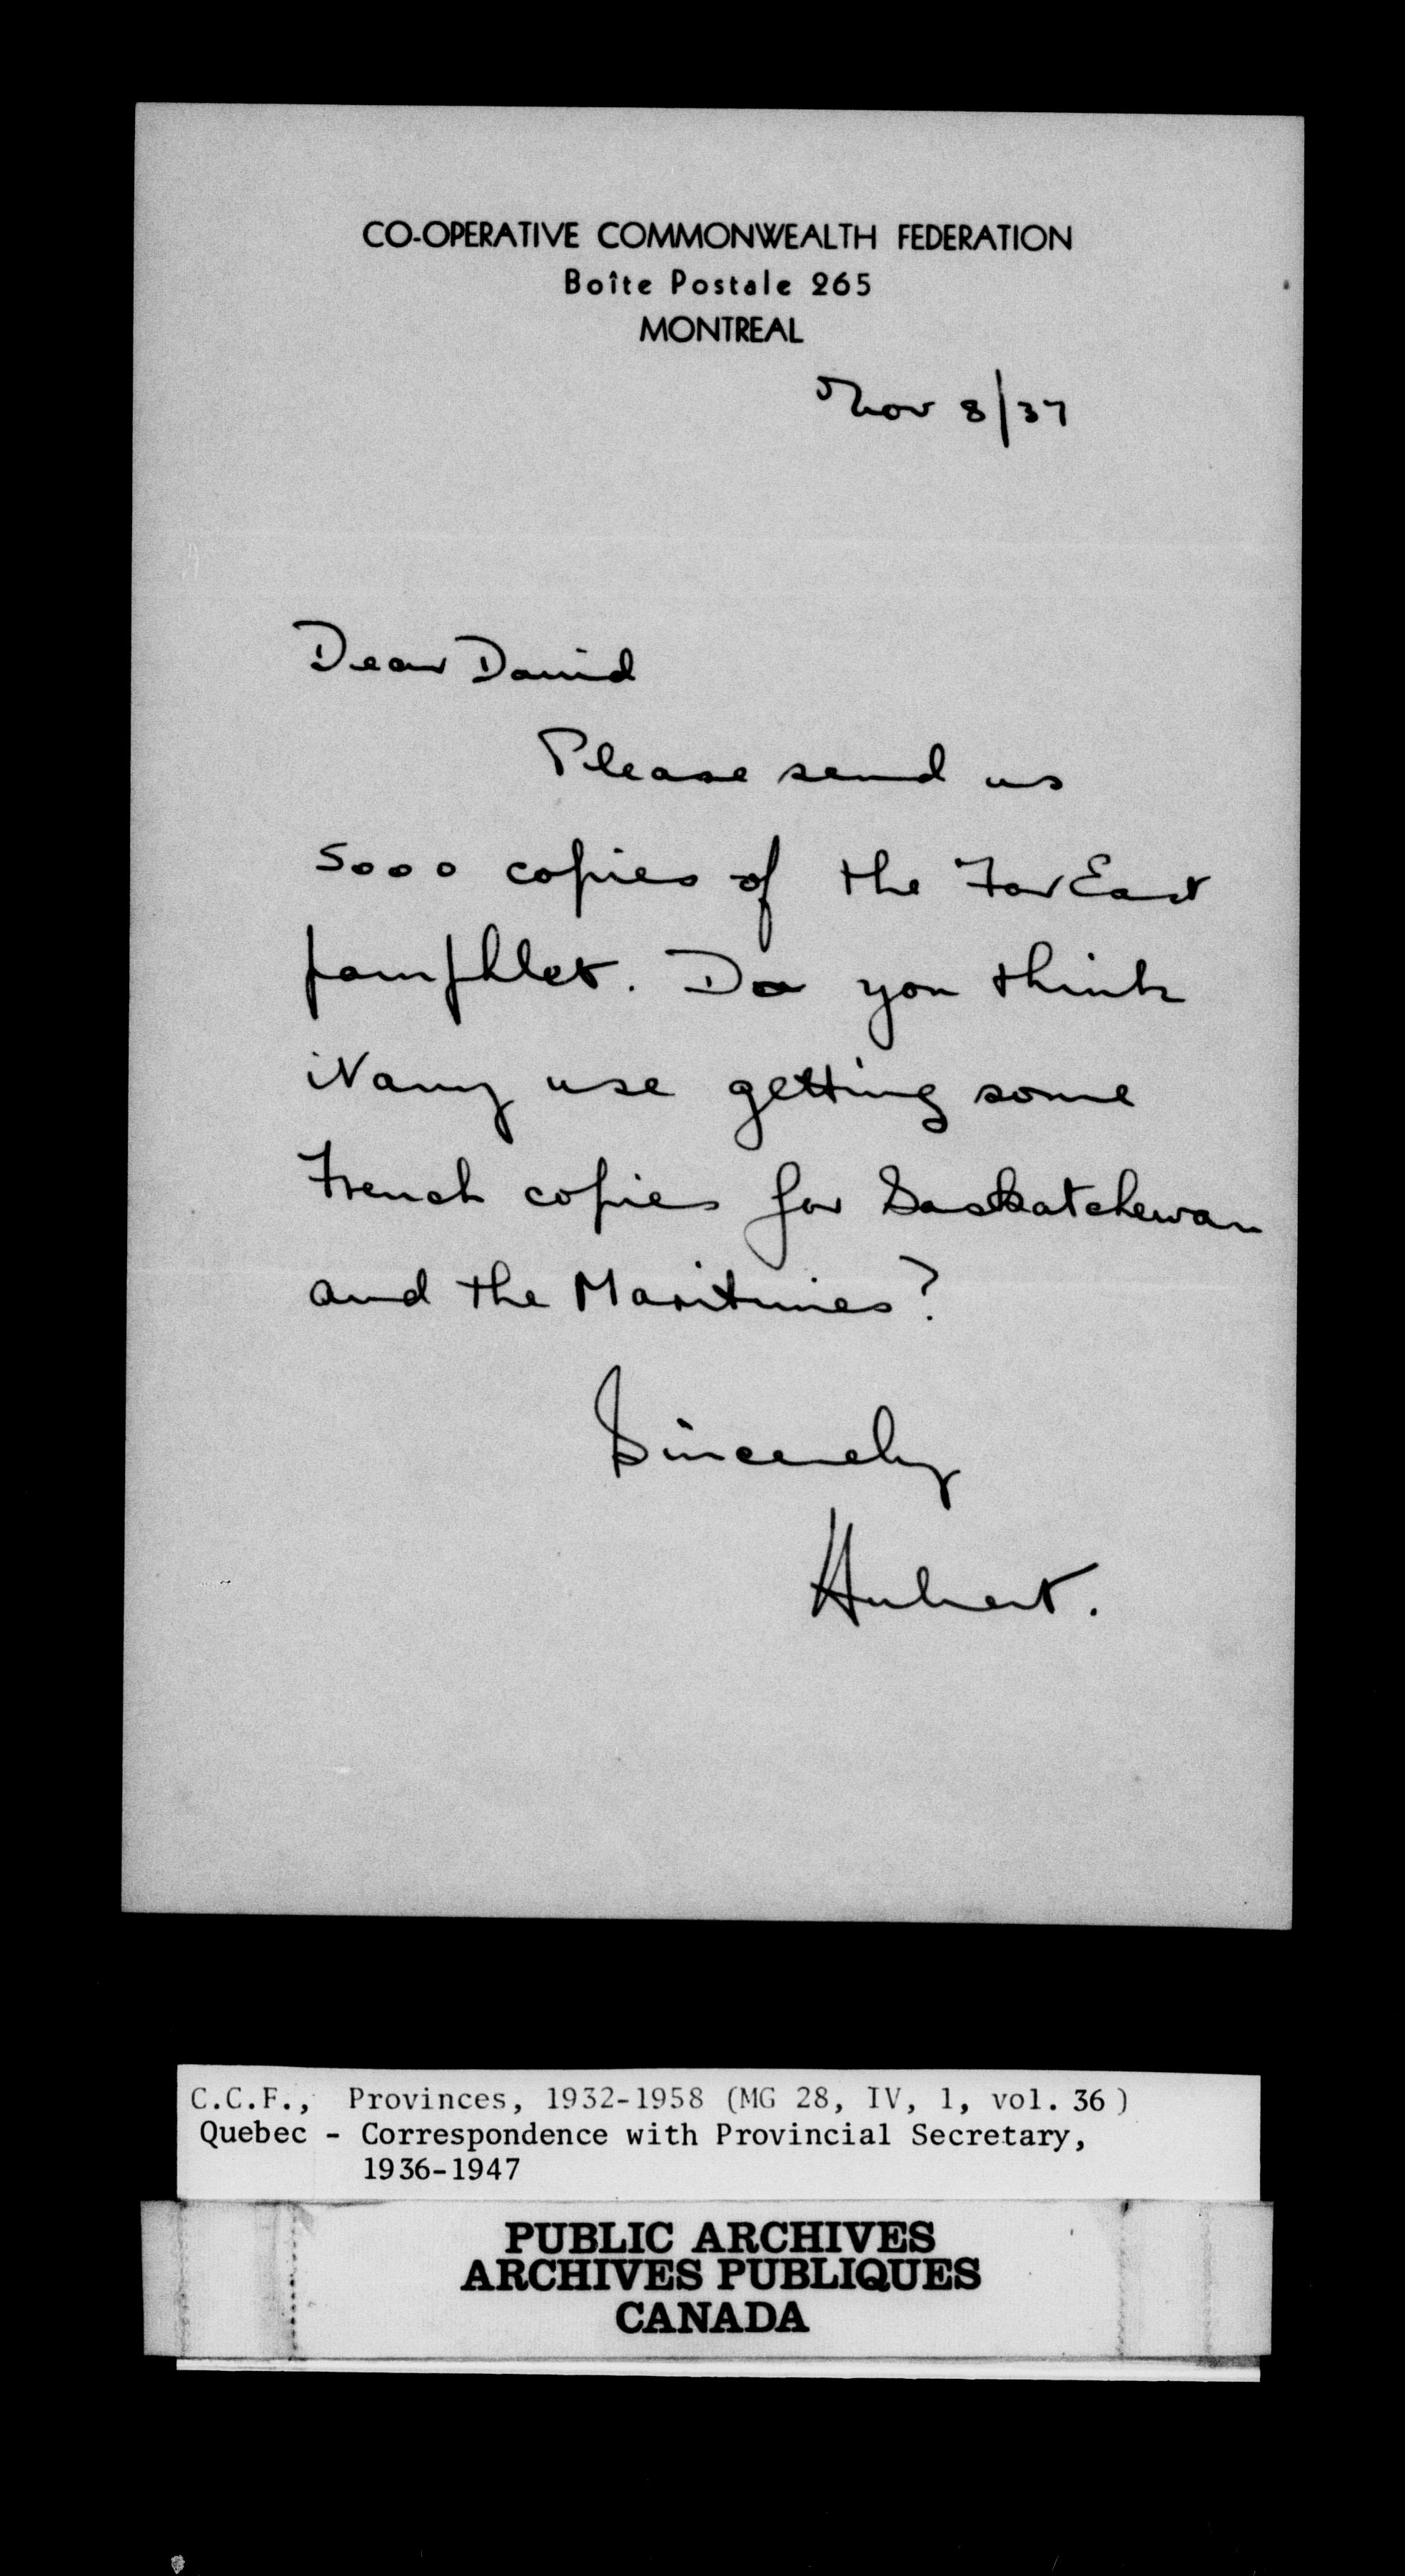 CO-OPERATIVE COMMONWEALTH FEDERATION
Boîte Postale 265
MONTREAL
Nov 8/37
Dear David
Please send us
5000 copies of the Far East
pamphlet. Do you think
it any use getting some
French copies for Saskatchewan
and the Maritimes?
Sincerely
Hubert.
C.C.F., Provinces, 1932-1958 (MG 28, IV, 1, vol. 36)
Quebec - Correspondence with Provincial Secretary,
1936-1947
PUBLIC ARCHIVES
ARCHIVES PUBLIQUES
CANADA